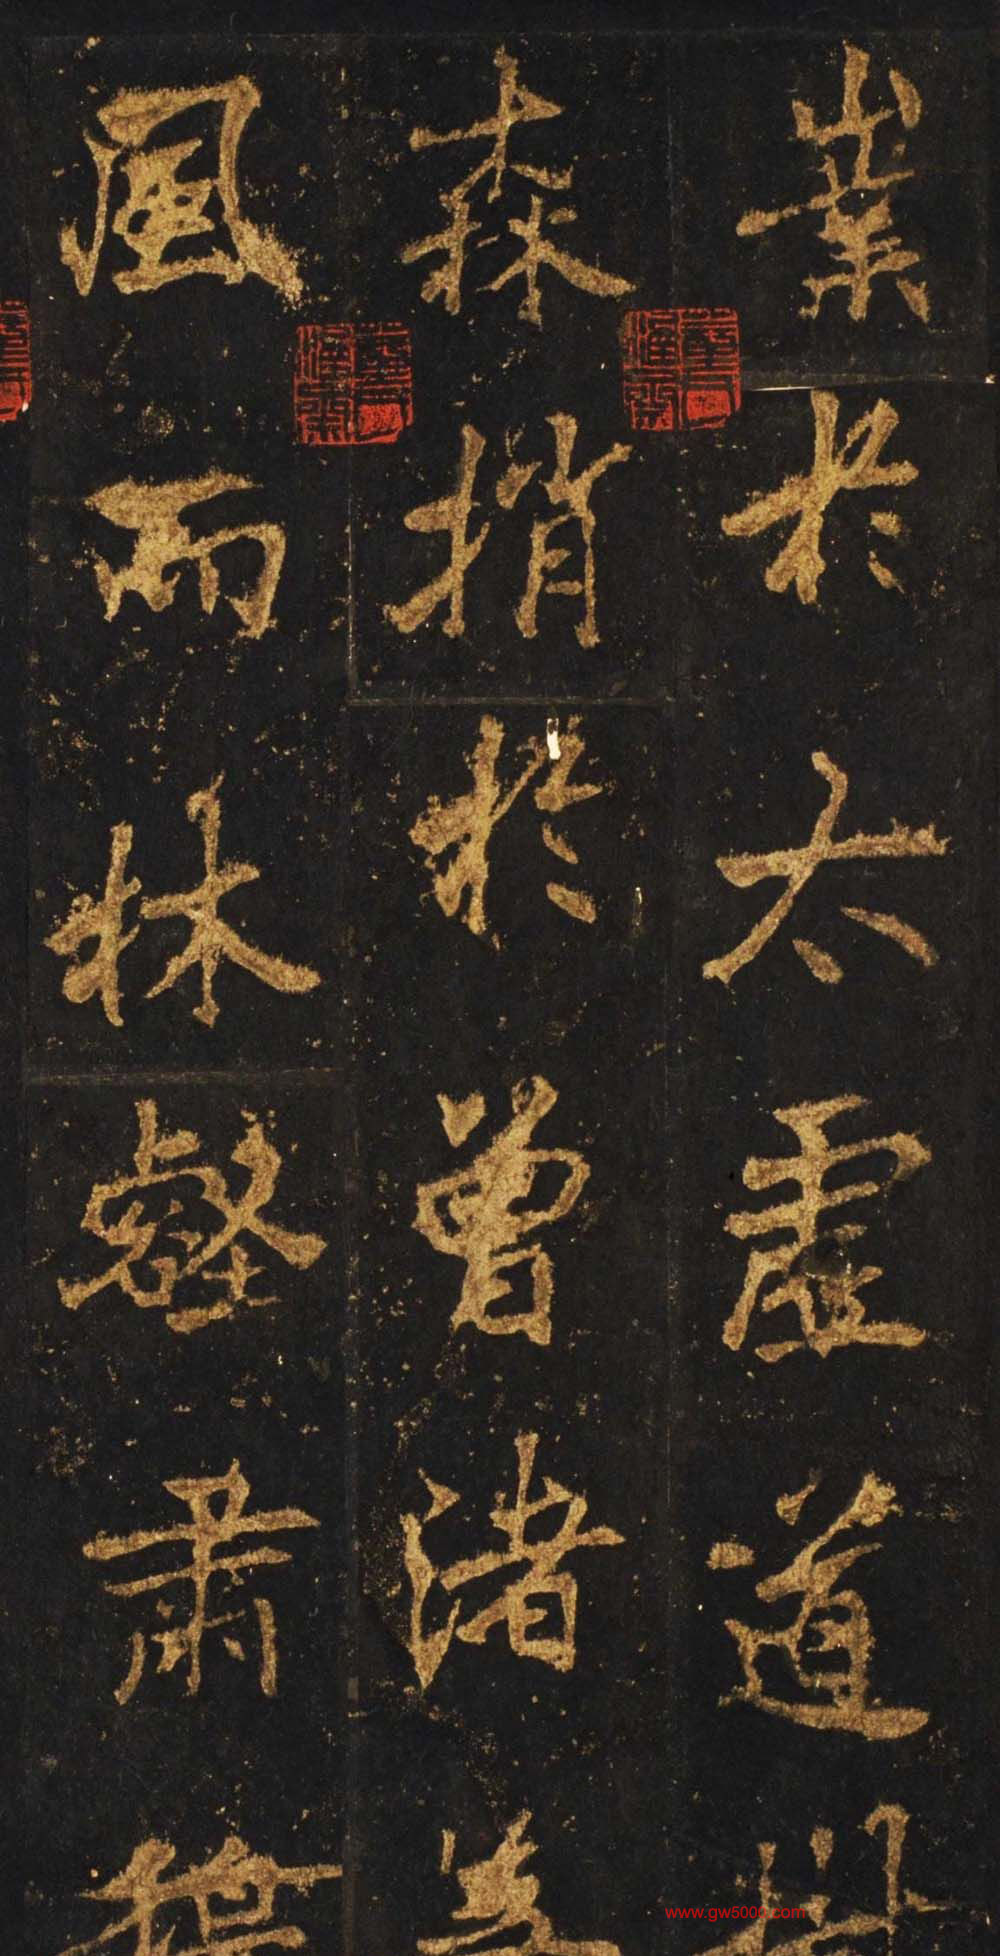 業於太虛道
森捎於曾渚
風而林壑肅
www.gw5000.com